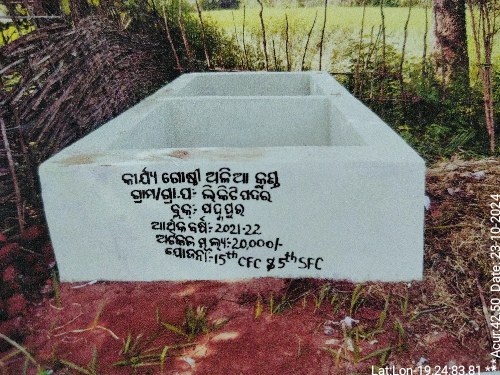 କାର୍ଯ୍ୟ ଗୋଷ୍ଠୀ ଅଳିଆ କୁଣ୍ଡ
ଗ୍ରାମ/ଗ୍ରା.ପ:- ଲିକିଟିପଦର
ବ୍ଲକ୍:- ପଦ୍ମପୁର
ଆର୍ଥିକ ବର୍ଷ:- 2021-22
ଅଟକଳ ମୂଲ୍ୟ:-20,000/-
ଯୋଜନା:-15th CFC & 5th SFC
Lat Lon-19.24,83.81
Date: 23-10-2024